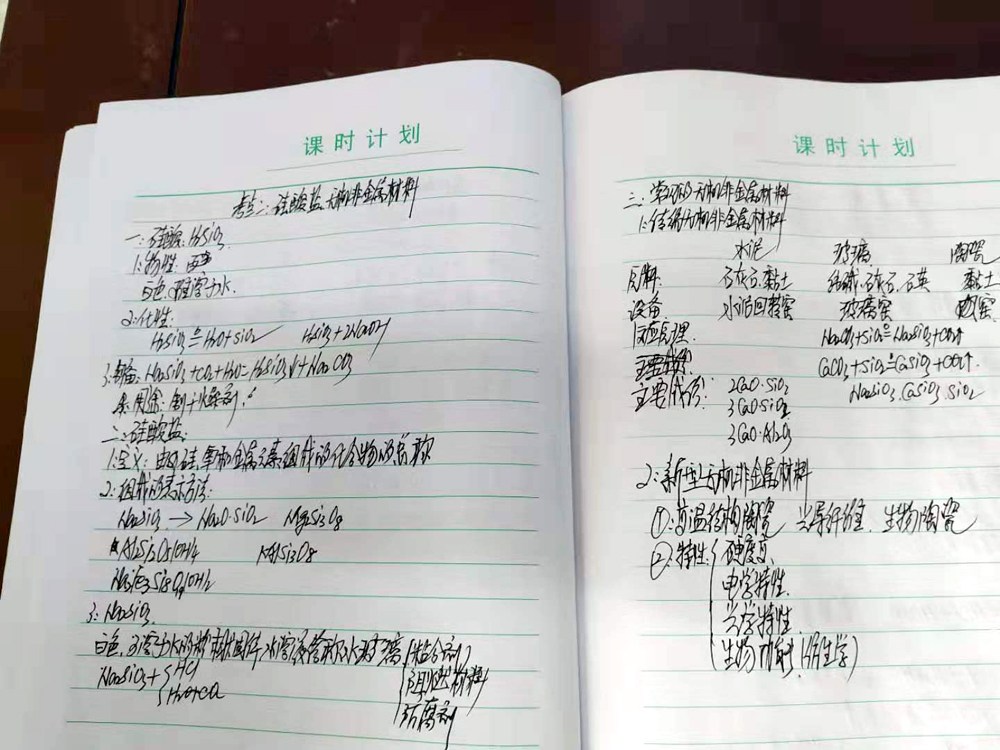 课时计划
考点二:硅酸盐 无机非金属材料
一:硅酸:H2SiO3
1:物性:
白色,难溶于水.
2:化性:
H2SiO3 = H2O+SiO2 H2SiO3+2NaOH
3:制备:Na2SiO3+CO2+H2O=H2SiO3↓+Na2CO3
用途:制干燥剂.
二:硅酸盐:
1:定义:由硅,氧和金属元素组成的化合物的总称
2:组成的表示方法:
Na2SiO3 → Na2O·SiO2 Mg2Si3O8
KAlSi3O8
3:Na2SiO3
白色,可溶于水的粉末状固体,水溶液俗称水玻璃 {粘合剂
Na2SiO3+{HCl 阻燃材料
H2O+CO2 防腐剂
课时计划
三:常见的无机非金属材料
1:传统无机非金属材料
水泥 玻璃 陶瓷
原料: 石灰石.黏土 纯碱.石灰石.石英 黏土
设备: 水泥回转窑 玻璃窑 陶瓷窑
反应原理. Na2CO3+SiO2=Na2SiO3+CO2↑
CaCO3+SiO2=CaSiO3+CO2↑.
主要成份: 2CaO·SiO2 Na2SiO3.CaSiO3.SiO2
3CaO·SiO2
3CaO·Al2O3
2:新型无机非金属材料
①:高温结构陶瓷 光导纤维.生物陶瓷
②:特性:{硬度高
电学特性.
光学特性
生物功能(